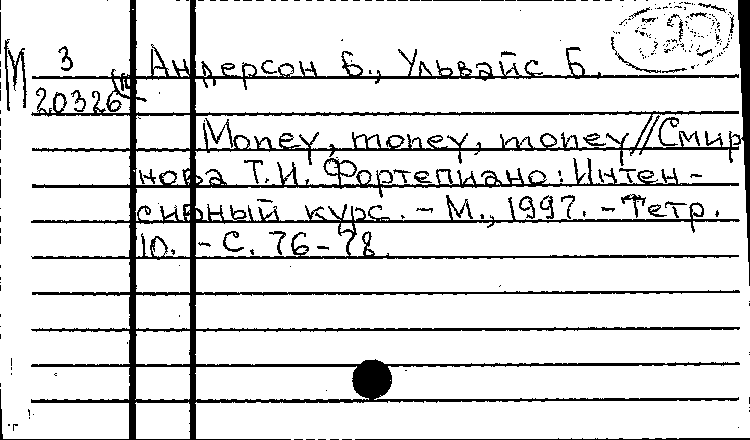 529
М 3 Андерсон Б., Ульвайс Б.
20326
Money, money, money // Смир
нова Т.И. Фортепиано: Интен-
сивный курс. - М., 1997. - Тетр.
10. - С. 76-78.